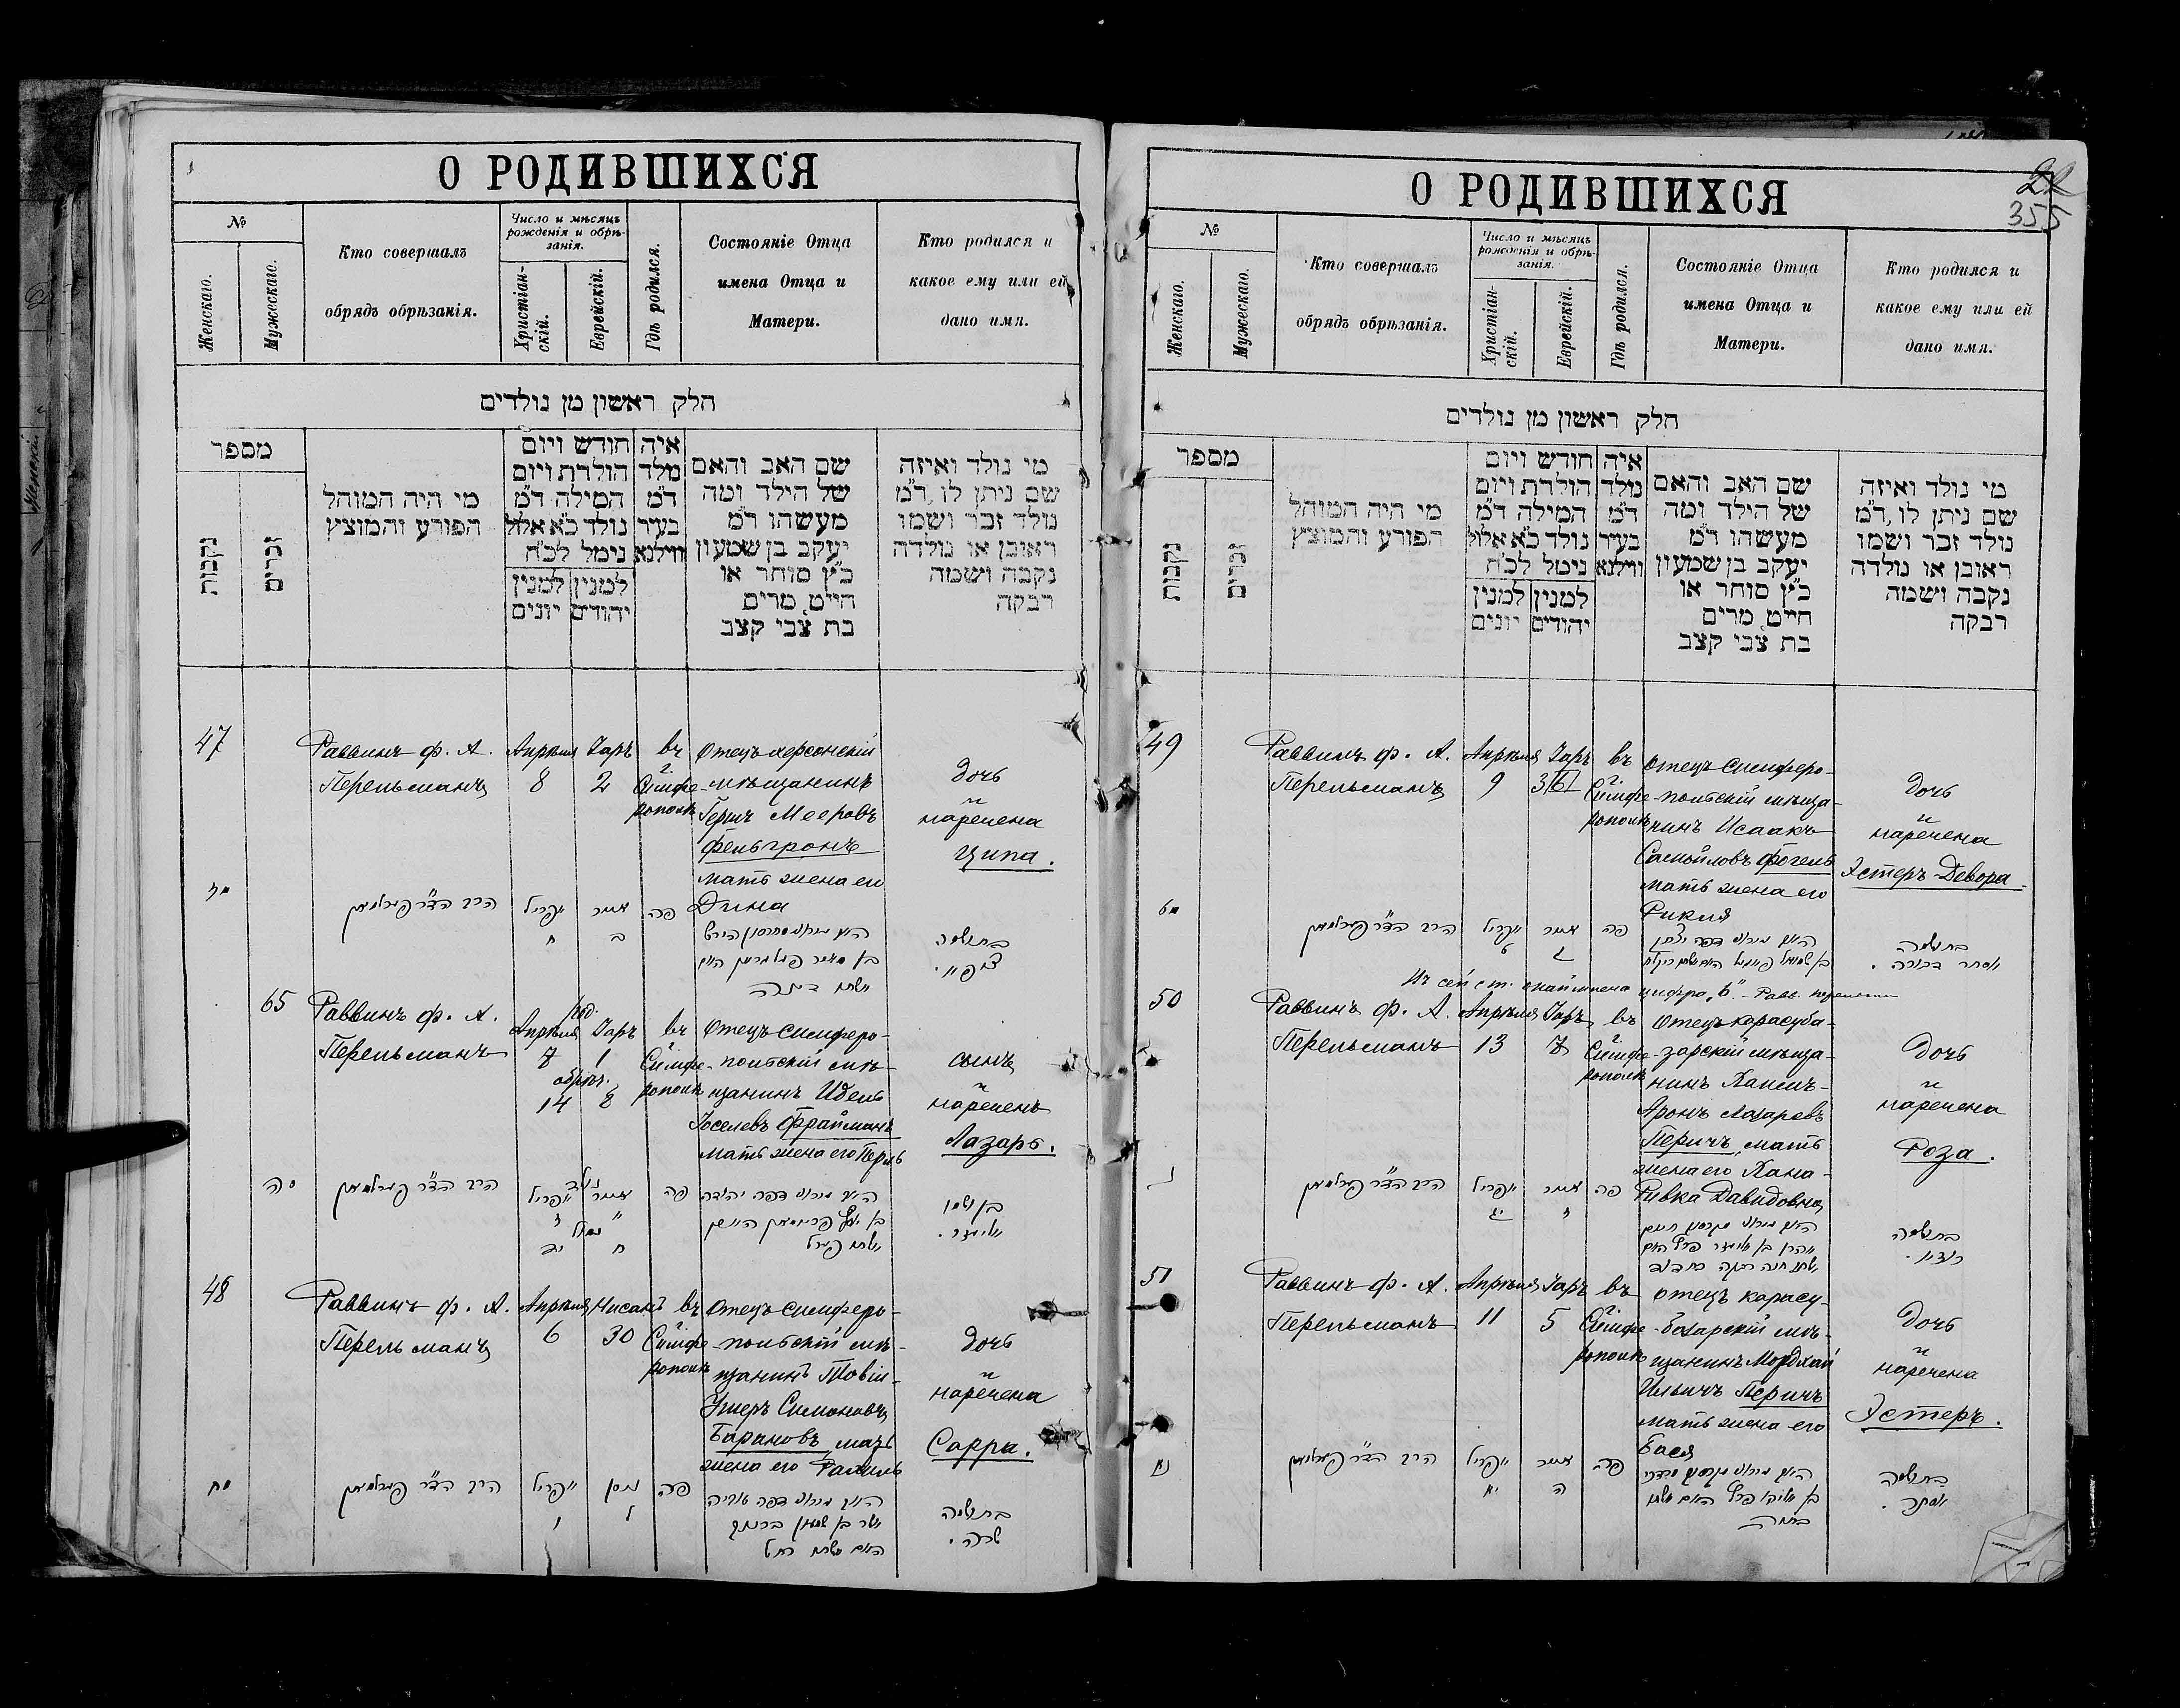 О РОДИВШИХСЯ
№
Женскаго.
Мужескаго.
Кто совершалъ
обрядъ обрѣзанія.
Число и мѣсяцъ
рожденія и обрѣ-
занія.
Христіан-
скій.
Еврейскій.
Гдѣ родился.
Состояніе Отца
имена Отца и
Матери.
Кто родился и
какое ему или ей
дано имя.
חלק ראשון מן נולדים
מספר
נקבות
זכרים
מי היה המוהל
הפורע והמוצץ
חודש ויום
הולדת ויום
המילה ד"מ
נולד כ"א אלול
נימל לכ"ח
למנין למנין
יהודים יונים
איה
נולד
ד"מ
בעיר
ווילנא
שם האב והאם
של הילד ומה
מעשהו ד"מ
יעקב בן שמעון
כ"ץ סוחר או
חייט מרים
בת צבי קצב
מי נולד ואיזה
שם ניתן לו ד"מ
נולד זכר ושמו
ראובן או נולדה
נקבה ושמה
רבקה
47
Раввинъ ф. А.
Перельманъ
Апрѣля
8
Іаръ
2
въ
г.
Симфе-
рополѣ
Отецъ херсонскій
мѣщанинъ
Гершъ Мееровъ
Фельгронъ
мать жена его
Дина
дочь
и
наречена
Ципа.
הרב הד"ר פערלמאן
אפריל
ח
אייר
ב
פה
65
Раввинъ ф. А.
Перельманъ
род.
Апрѣля
7
обрѣз.
14
Іаръ
1
8
въ
г.
Симфе-
рополѣ
Отецъ симферо-
польскій мѣ-
щанинъ Идель
Іоселевъ Фрайманъ
мать жена его Перль
сынъ
и
нареченъ
Лазарь.
סה
הרב הד"ר פערלמאן
אפריל
אייר
פה
48
Раввинъ ф. А.
Перельманъ
Апрѣля
6
Нисанъ
30
въ
г.
Симфе-
рополѣ
Отецъ симферо-
польскій мѣ-
щанинъ Товій-
Ушеръ Симоновъ
Барановъ мать
жена его Рахиль
дочь
и
наречена
Сарра.
הרב הד"ר פערלמאן
אפריל
ו
ניסן
ל
פה
בת ושמה
שרה.
О РОДИВШИХСЯ
355
№
Женскаго.
Мужескаго.
Кто совершалъ
обрядъ обрѣзанія.
Число и мѣсяцъ
рожденія и обрѣ-
занія.
Христіан-
скій.
Еврейскій.
Гдѣ родился.
Состояніе Отца
имена Отца и
Матери.
Кто родился и
какое ему или ей
дано имя.
חלק ראשון מן נולדים
מספר
נקבות
זכרים
מי היה המוהל
הפורע והמוצץ
חודש ויום
הולדת ויום
המילה ד"מ
נולד כ"א אלול
נימל לכ"ח
למנין למנין
יהודים יונים
איה
נולד
ד"מ
בעיר
ווילנא
שם האב והאם
של הילד ומה
מעשהו ד"מ
יעקב בן שמעון
כ"ץ סוחר או
חייט מרים
בת צבי קצב
מי נולד ואיזה
שם ניתן לו ד"מ
נולד זכר ושמו
ראובן או נולדה
נקבה ושמה
רבקה
49
Раввинъ ф. А.
Перельманъ
Апрѣля
9
Іаръ
3
въ
г.
Симфе-
рополѣ
Отецъ симферо-
польскій мѣща-
нинъ Исаакъ
Самойловъ Фогель
мать жена его
Рикля
дочь
и
наречена
Эстеръ-Девора.
הרב הד"ר פערלמאן
אפריל
ט
אייר
ג
פה
בת ושמה
אסתר דבורה.
цифра „6“ - Равв. Перельманъ
50
Раввинъ ф. А.
Перельманъ
Апрѣля
13
Іаръ
7
въ
г.
Симфе-
рополѣ
Отецъ карасуба-
зарскій мѣща-
нинъ Хаимъ-
Аронъ Лазаревъ
Перичъ, мать
жена его Хана-
Ривка Давидовна
дочь
и
наречена
Роза.
נ
הרב הד"ר פערלמאן
אפריל
יג
אייר
ז
פה
51
Раввинъ ф. А.
Перельманъ
Апрѣля
11
Іаръ
5
въ
г.
Симфе-
рополѣ
Отецъ карасу-
базарскій мѣ-
щанинъ Мордхай
Ильичъ Перичъ
мать жена его
Бася
дочь
и
наречена
Эстеръ.
נא
הרב הד"ר פערלמאן
אפריל
יא
אייר
ה
פה
בת ושמה
אסתר.